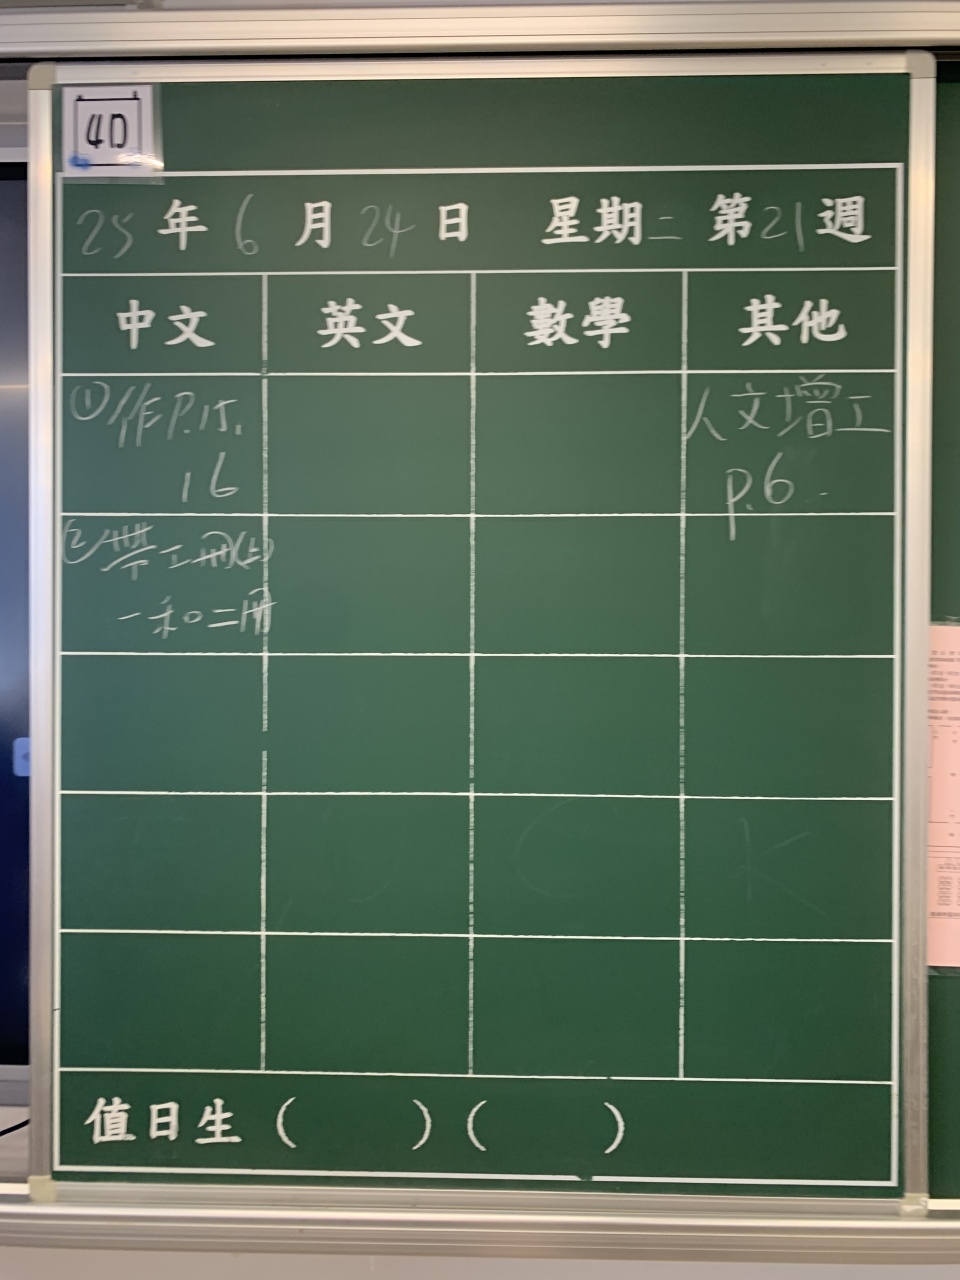 4D
25年6月24日 星期二 第21週
中文 英文 數學 其他
①作P.15.
16
人文增工
P.6
②
一和二冊
值日生 ( ) ( )